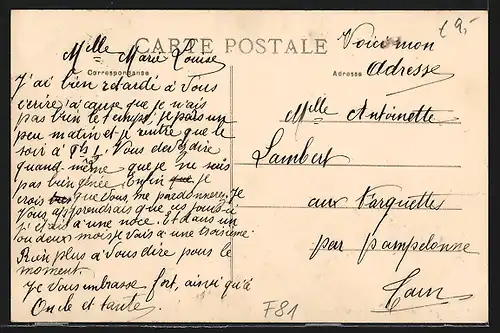 £ 9,-
CARTE POSTALE
Correspondance
Adresse
Mlle Marie Louise
J'ai bien retardé à vous
écrire, à cause que je n'ais
pas bien le temps, je pars un
peu matin et je rentre que le
soir à 9h ½. Vous devez dire
quand-même que je ne suis
pas bien génée, enfin que je
crois que vous me pardonnerez. Je
vous apprendrais que ces jours-ci
j'étais à une noce. Et dans un
ou deux mois je vais à une troisième.
Rien plus à vous dire pour le
moment.
Je vous embrasse fort, ainsi qu'à
Oncle et tante.
Voici mon
adresse
Mlle Antoinette
Lambert
aux Farguettes
par Pampelonne
Tarn
F81